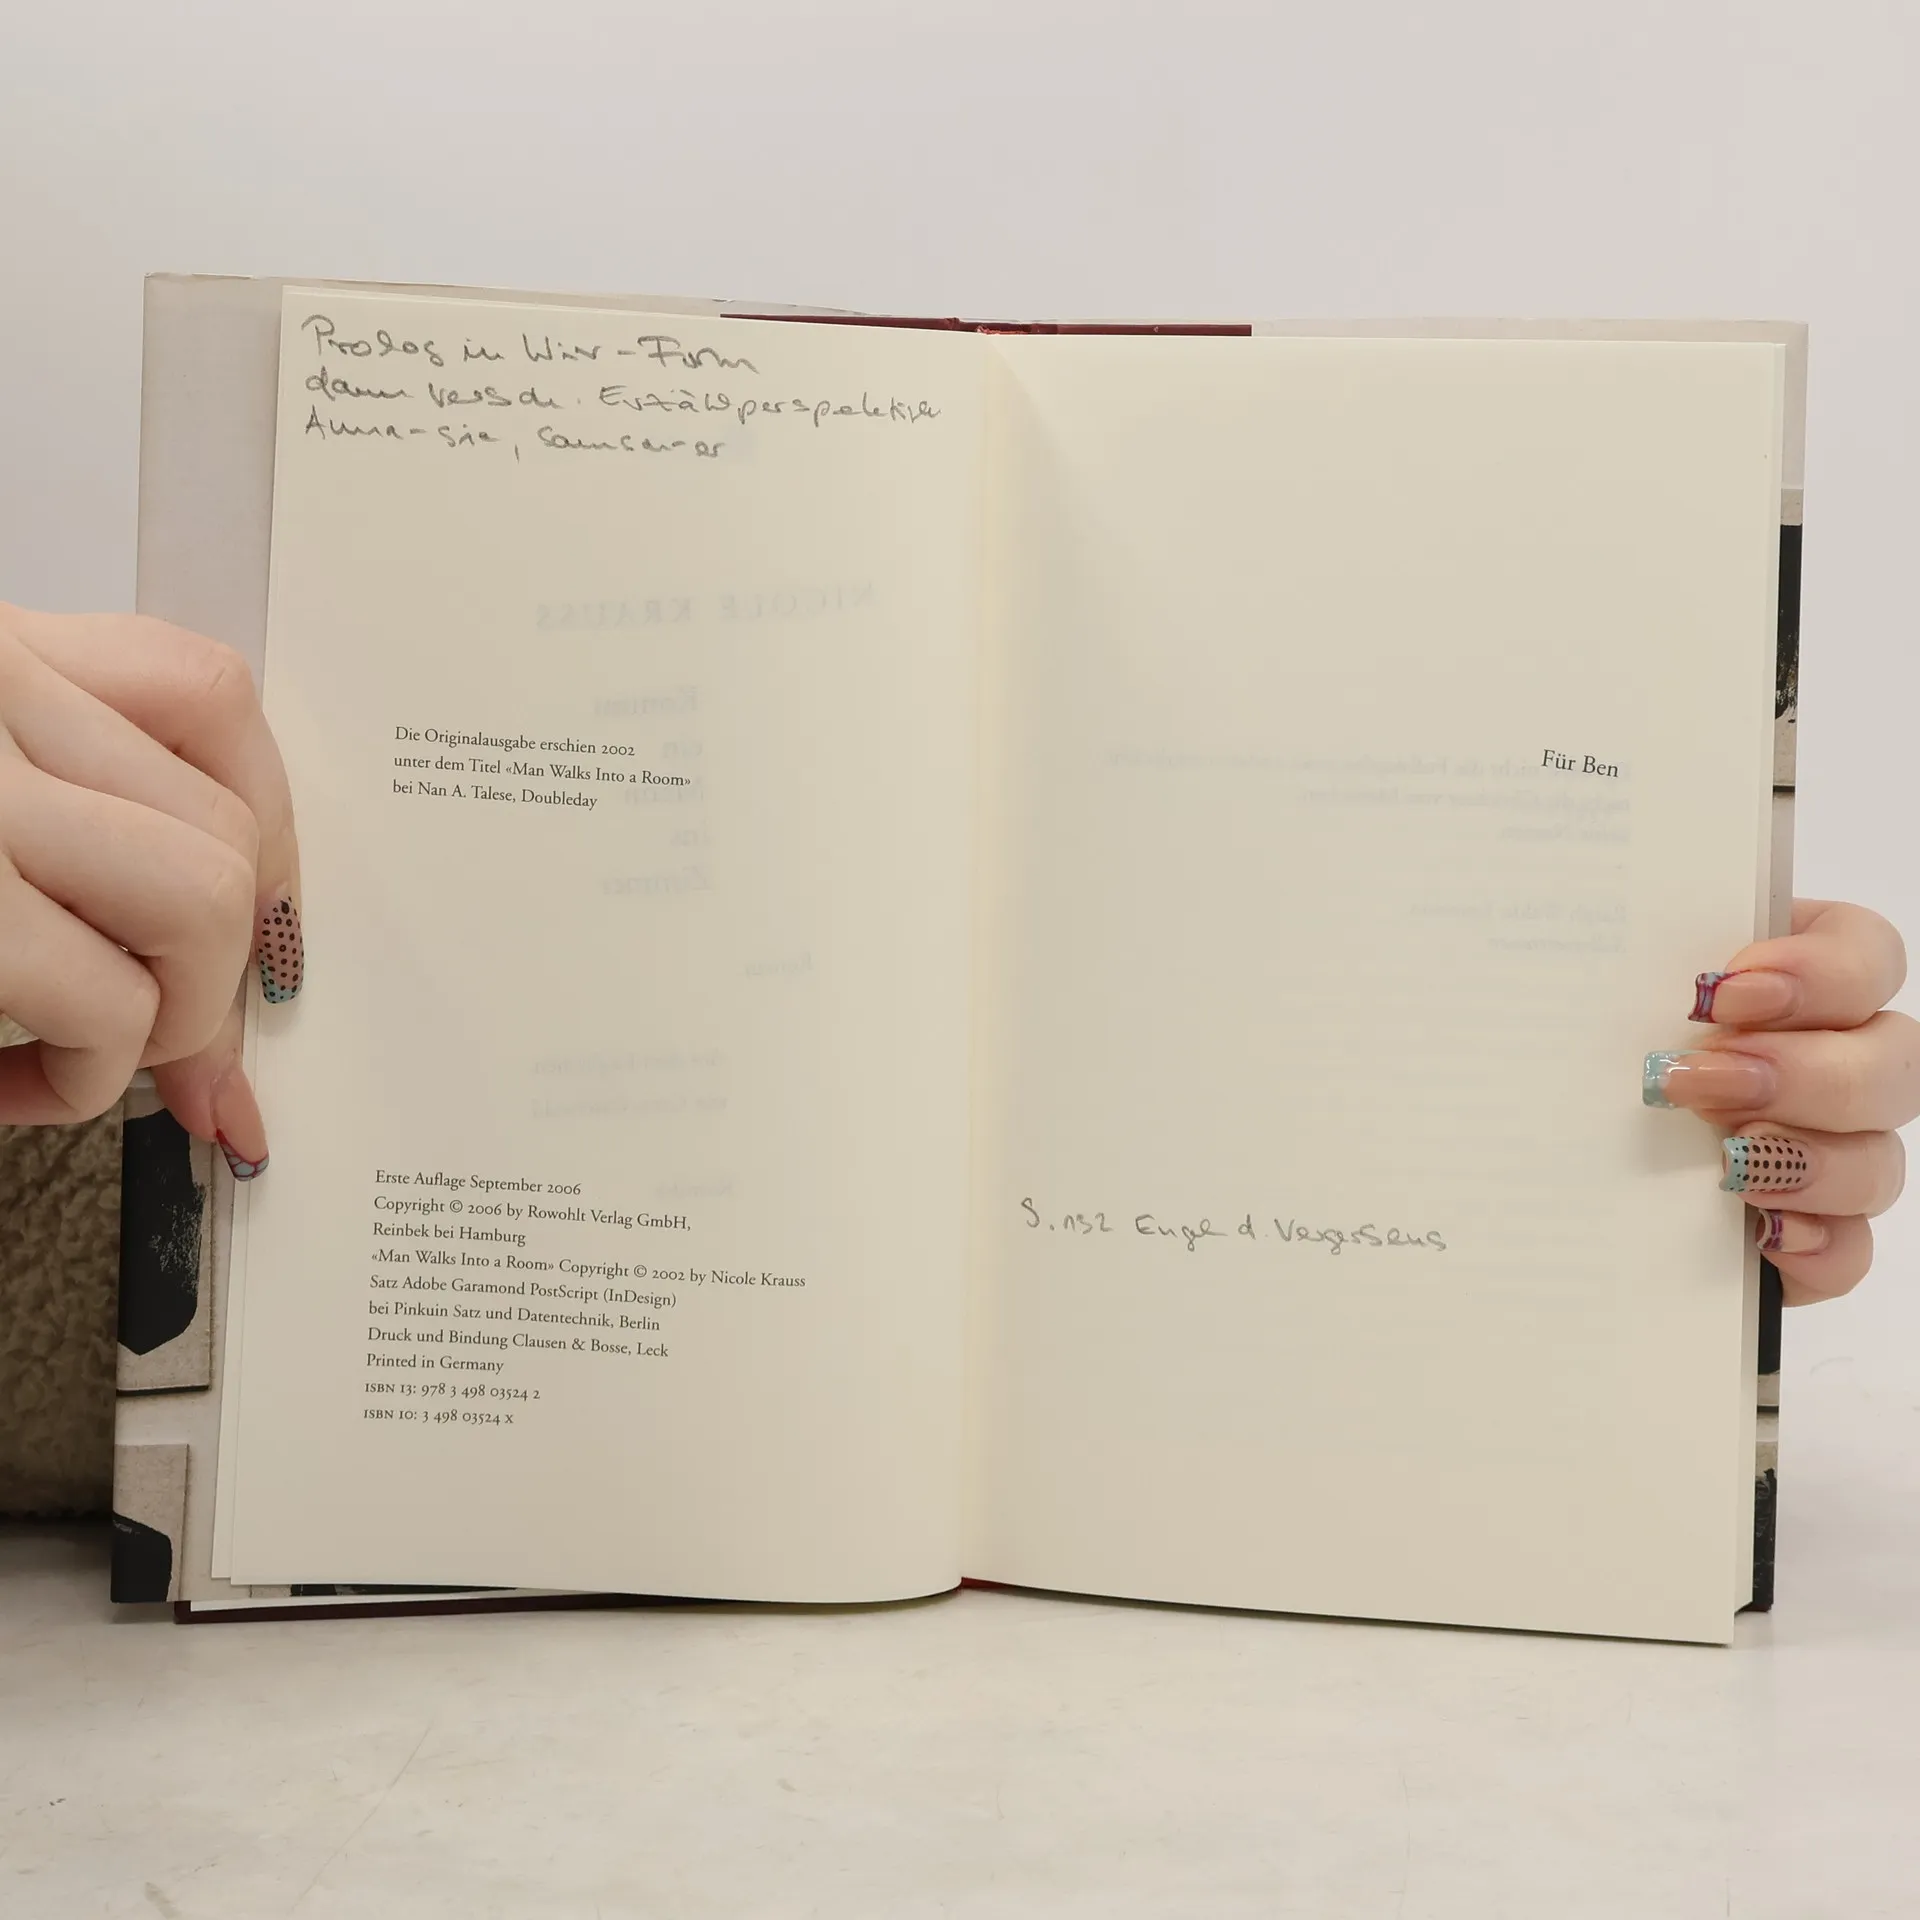 Prolog in Wir-Form
dann versch. Erzählperspektiven
Anna-sie, Samson-er
Die Originalausgabe erschien 2002
unter dem Titel «Man Walks Into a Room»
bei Nan A. Talese, Doubleday
Erste Auflage September 2006
Copyright © 2006 by Rowohlt Verlag GmbH,
Reinbek bei Hamburg
«Man Walks Into a Room» Copyright © 2002 by Nicole Krauss
Satz Adobe Garamond PostScript (InDesign)
bei Pinkuin Satz und Datentechnik, Berlin
Druck und Bindung Clausen & Bosse, Leck
Printed in Germany
ISBN 13: 978 3 498 03524 2
ISBN 10: 3 498 03524 X
Für Ben
S. 132 Engel d. Vergessens